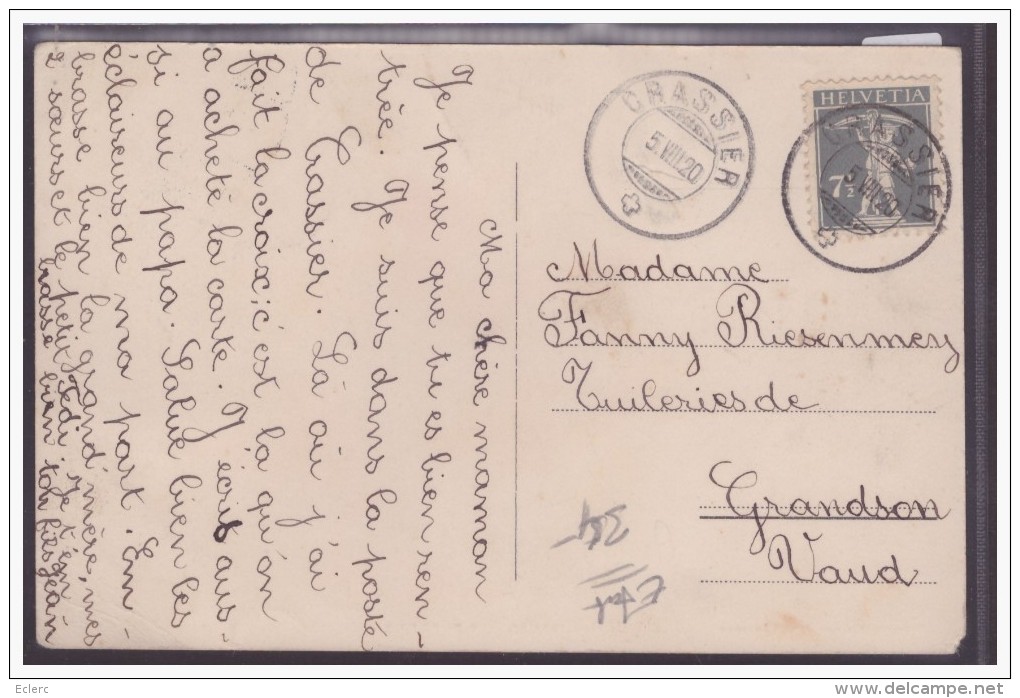 Ma chère maman
Je pense que tu es bien ren-
trée. Je suis dans la poste
de Crassier. Là où j'ai
fait la croix; c'est la qu'on
a acheté la carte. J'écris aus-
si au papa. Salue bien les
éclaireurs de ma part. Em-
brasse bien la grand'mère, mes
2 sœurs et le petit Jedi. Je t'em
brasse bien ton fils Jean
CRASSIER
5.VIII.20
HELVETIA
7½
CRASSIER
5.VIII.20
Madame
Fanny Riesenmey
Tuileries de
Grandson
Vaud
Eclerc
www.delcampe.net